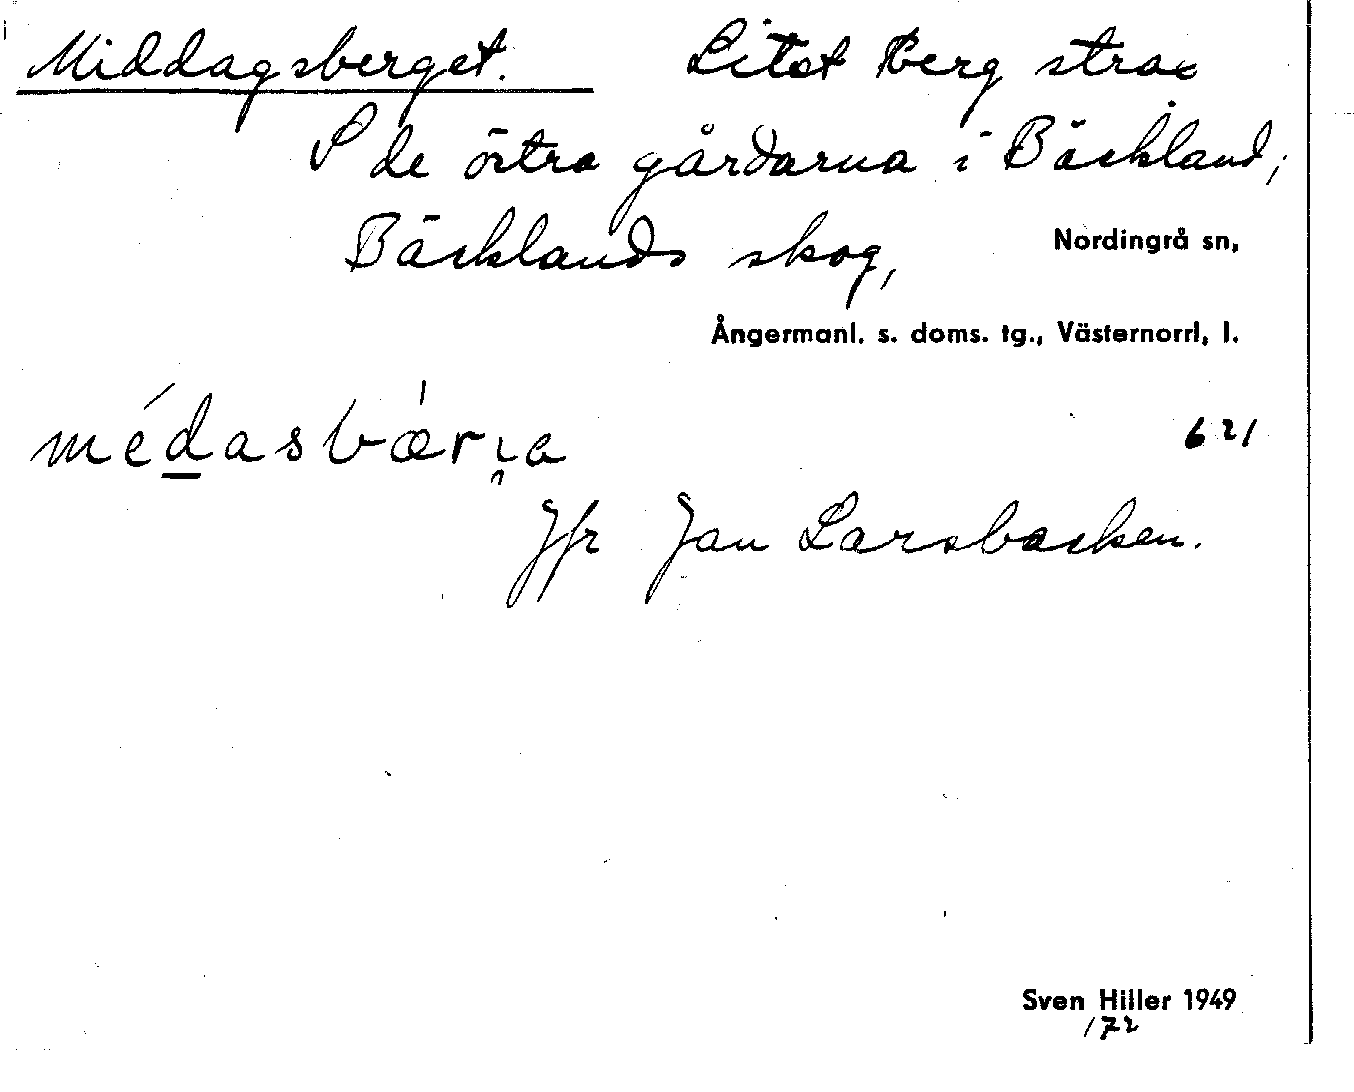 Middagsberget. Litet berg strax
S de östra gårdarna i Bäckland,
Bäcklands skog, Nordingrå sn,
Ångermanl. s. doms. tg., Västernorrl, l.
621
Jfr Jan Larsbacken.
Sven Hiller 1949
172